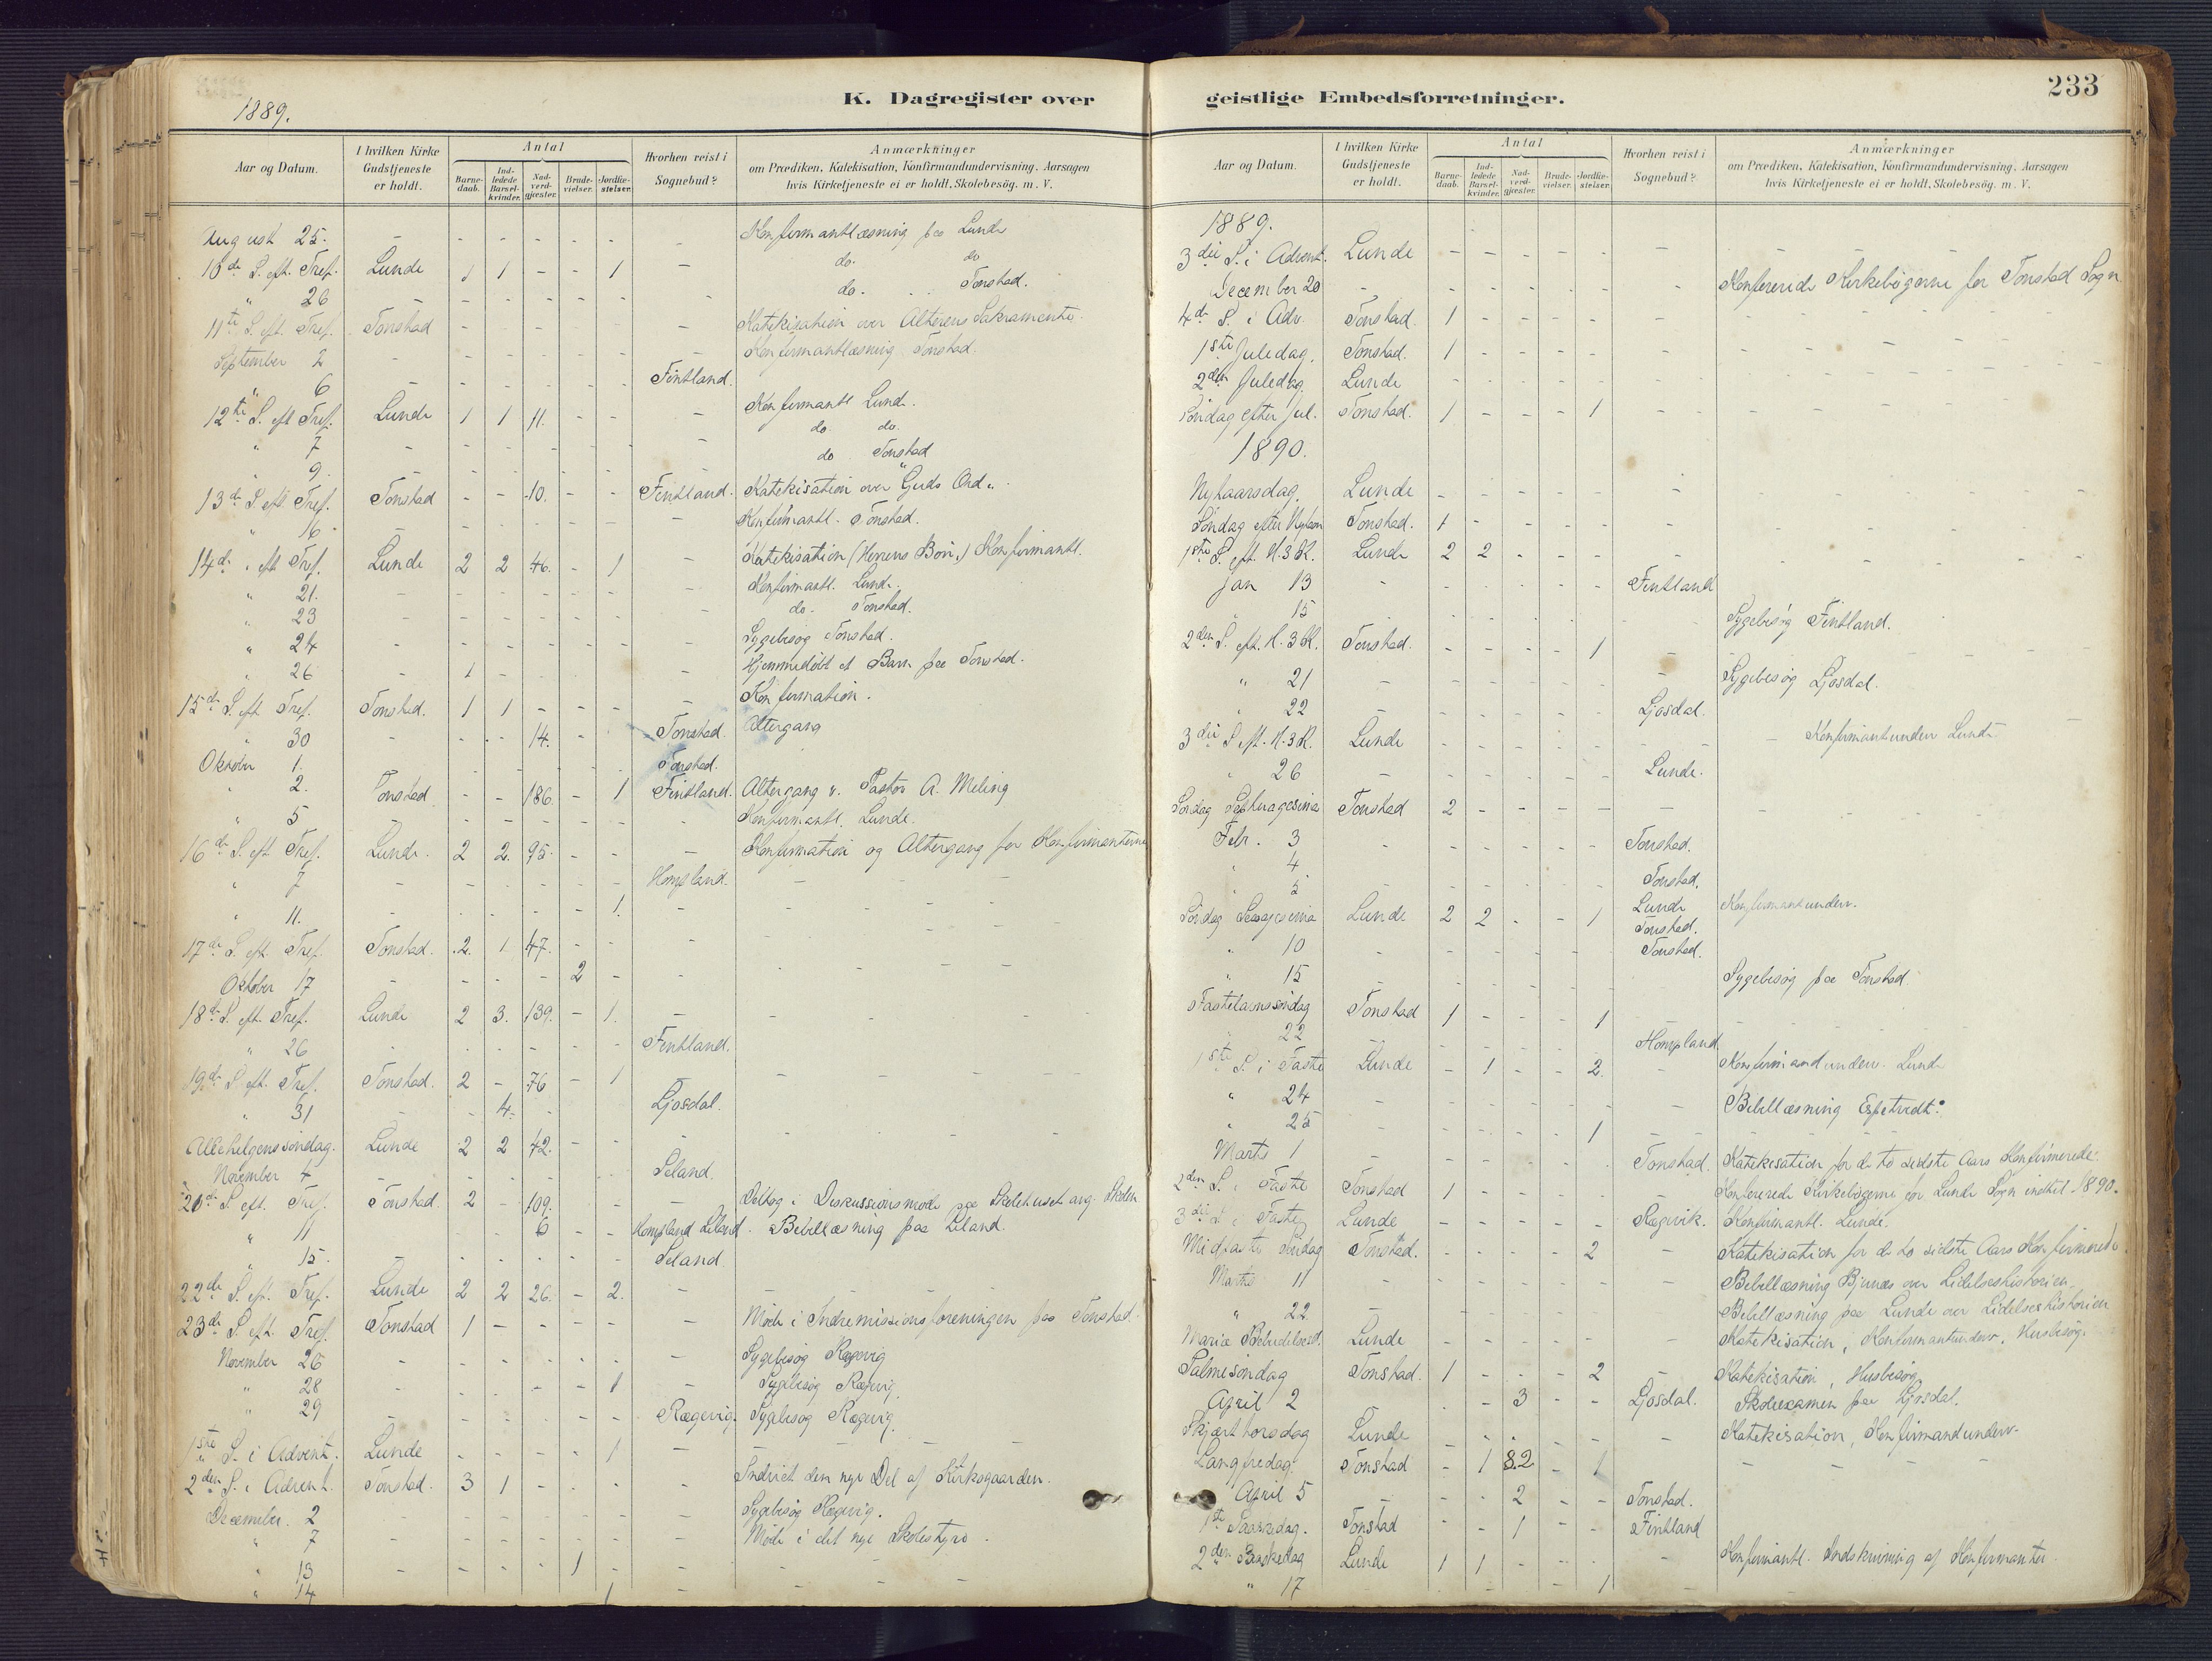 1889.
K. Dagregister over
Aar og Datum.
I hvilken Kirke Gudstjeneste er holdt.
Antal
Barne-daab.
Ind-ledede Barsel-kvinder.
Nad-verd-gjæster.
Brude-vielser.
Jordfæ-stelser.
Hvorhen reist i Sognebud?
Anmærkninger
om Prædiken, Katekisation, Konfirmandundervisning. Aarsagen
hvis Kirketjeneste ei er holdt. Skolebesög. m. V.
August 25. - - - - - - - Konfirmantlæsning paa Lunde
10de S. eft. Tref. Lunde 1 1 - - 1 - do. do
" 26 - - - - - - - do. Tonstad.
11te S. eft. Tref. Tonstad - - - - - - Katekisation over Alterens Sakramente.
September 2 - - - - - - - Konfirmantlæsning Tonstad.
" 6 - - - - - - Fintland.
12te S. eft Tref. Lunde 1 1 11. - - - Konfirmantl Lunde.
" 7 - - - - - - - do do.
" 9 - - - - - - - do Tonstad
13de S eft. Tref. Tonstad - - 10. - - Fintland. Katekisation over "Guds Ord".
" 16 - - - - - - - Konfirmantl. Tonstad.
14de " eft Tref. Lunde 2 2 46. - 1 - Katekisation (Herrens Bön.) Konfirmantl.
" 21. - - - - - - - Konfirmantl. Lunde.
" 23 - - - - - - - do. Tonstad.
" 24 - - - - - - - Sygebesög Tonstad.
" 26 - 1 - - - - - Hjemmedöbt et Barn paa Tonstad.
15de S. eft. Tref. Tonstad. 1 1 - - - - Konfirmation.
" 30 - - - 14. - - Tonstad. Altergang
Oktober 1. - - - - - Tonstad.
" 2. Tonstad - - 186. - 1 Fintland. Altergang v. Pastor A. Meling
" 5 - - - - - - - Konfirmantl. Lunde.
16de S. eft. Tref. Lunde. 2 2. 95. - - - Konfirmation og Altergang for Konfirmanterne
" 7 - - - - - - Hompland. - - -
" 11. - - - - - 1. - - - -
17de S. eft. Tref. Tonstad. 2. 1 47. - - - - -
Oktober 17 - - - - 2 - -
18de S. eft. Tref. Lunde 2 3. 139. - 1. - - - -
" 26 - - - - - - Fintland.
19de S. eft. Tref. Tonstad. 2 - 76 - 1 - - -
" 31 - - 4. - Ljosdal.
Allehelgenssöndag. Lunde 2 2 42. - - - - - -
November 4 - - - - - - Seland.
20de S. eft. Tref. Tonstad. 2 - 109. - - - Deltog i Diskussionsmöde paa Skolehuset ang. Skolen
" 11 - - - 6 - - Hompland Seland. Bibellæsning paa Seland.
" 15. - - - - - - Seland
22de S. eft. Tref. Lunde 2 2 26. - 2. - -
23de S. eft. Tref. Tonstad 1 - - - - - Möde i Indremissionsforeningen paa Tonstad.
November 26 - - - - - - - Sygebesög Rægevig
" 28 - - - - - 1 - Sygebesög Rægevig.
" 29 - - - - - - Rægevig. Sygebesög Rægevig.
1ste S. i Advent. Lunde - - - - 1 - - - -
2den S. i Advent. Tonstad. 3 1 - - - - Indviet den nye Del af Kirkegaarden.
December. 2 - - - - - - - Sygebesög Rægevig.
" 7 - - - - - - - Möde i det nye Skolestyre.
" 13 - - - - 1 - -
" 14 - - - - - 1 - - -
233
geistlige Embedsforretninger.
Aar og Datum.
I hvilken Kirke Gudstjeneste er holdt.
Antal
Barne-daab.
Ind-ledede Barsel-kvinder.
Nad-verd-gjæster.
Brude-vielser.
Jordfæ-stelser.
Hvorhen reist i Sognebud?
Anmærkninger
om Prædiken, Katekisation, Konfirmandundervisning. Aarsagen
hvis Kirketjeneste ei er holdt. Skolebesög. m. V.
1889.
3die S. i Advent. Lunde - - - - - - -
December 20 - - - - - - - Konfererede Kirkebögerne for Tonstad Sogn
4de S. i Adv. Tonstad. 1 - - - - - -
1ste Juledag. Tonstad. 1 - - - - - -
2den Juledag Lunde - - - - - - -
Söndag efter Jul. Tonstad. 1 - - - 1 - -
1890.
Nytaarsdag. Lunde - - - - - - -
Söndag efter Nytaar Tonstad. 1 - - - - - -
1ste S. eft. H.3K. Lunde 2 2 - - - - -
Jan 13 - - - - - - Fintland
" 15 - - - - - - - Sygebesög Fintland.
2den S. eft. H.3K. Tonstad. - - - - 1 - -
" 21 - - - - - - - Sygebesög Ljosdal.
" 22 - - - - - - Ljosdal.
3die S eft. H.3K. Lunde - - - - - - - Konfirmantunderv Lunde
" 26 - - - - - - Lunde.
Söndag Septuagesima Tonstad 2 - - - - - -
Febr. 3 - - - - - - Tonstad.
" 4 Tonstad.
" 5 - - - - - - Lunde
Söndag Sexagesima Lunde 2 2 - - 1 Tonstad. Konfirmantunderv.
" 10 - - - - - - Tonstad.
" 15 - - - - - - Sygebesög paa Tonstad
Fastelavnssöndag Tonstad 1 - - - 1 - -
" 22 - - - - - - Hompland
1ste S. i Faste Lunde - 1 - - 2. - Konfirmandunderv. Lunde
" 24 - - - - - - - Bibellæsning Espetvedt.
" 25 - - - - - 1 - -
Marts 1 - - - - - - Tonstad. Katekisation for de to sidste Aars Konfirmerede.
2den S. i Faste Tonstad 1 - - - - - Konfererede Kirkebögerne for Lunde Sogn indtil 1890.
3die S. i Faste Lunde - - - - - Rægevik. Konfirmantl. Lunde.
Midfaste Söndag Tonstad. - - - - 2 - Katekisation for de to sidste Aars Konfirmerede.
Marts 11 - - - - - - - Bibellæsning Bjunes over Lidelseshistorien.
" 22 - - - - - - - Bibellæsning paa Lunde over Lidelseshistorien
Mariæ Bebudelsesd. Lunde - - - - - - Katekisation, Konfirmantunderv. Husbesög.
Palmesöndag Tonstad. 1 - - - 2 - Katekisation, Husbesög
April 2 - - - 3 - - Ljosdal. Skoleexamen paa Ljosdal.
Skjærthorsdag Lunde - - - - - - Katekisation, Konfirmandunderv.
Langfredag. Tonstad - 1 82 - 1 - - - -
April 5 - - - 2 - - Tonstad.
1ste Paaskedag. Tonstad - - 1 - - Fintland
2den Paaskedag Lunde 1 1 - - - - Konfirmantl. Indskrivning af Konfirmanter.
" 17 - - - - 1 - -